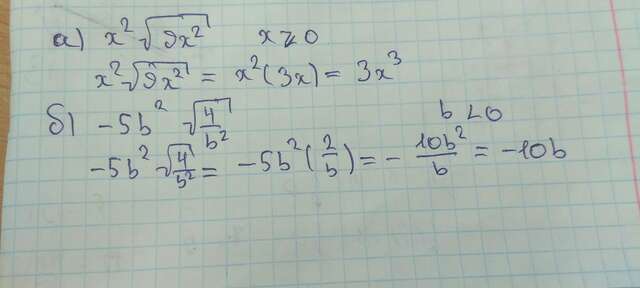 а) x² √(9x²)   x ≥ 0
x² √(9x²) = x² (3x) = 3x³
б) -5b² √(4/b²)   b < 0
-5b² √(4/b²) = -5b² (2/b) = - 10b²/b = -10b